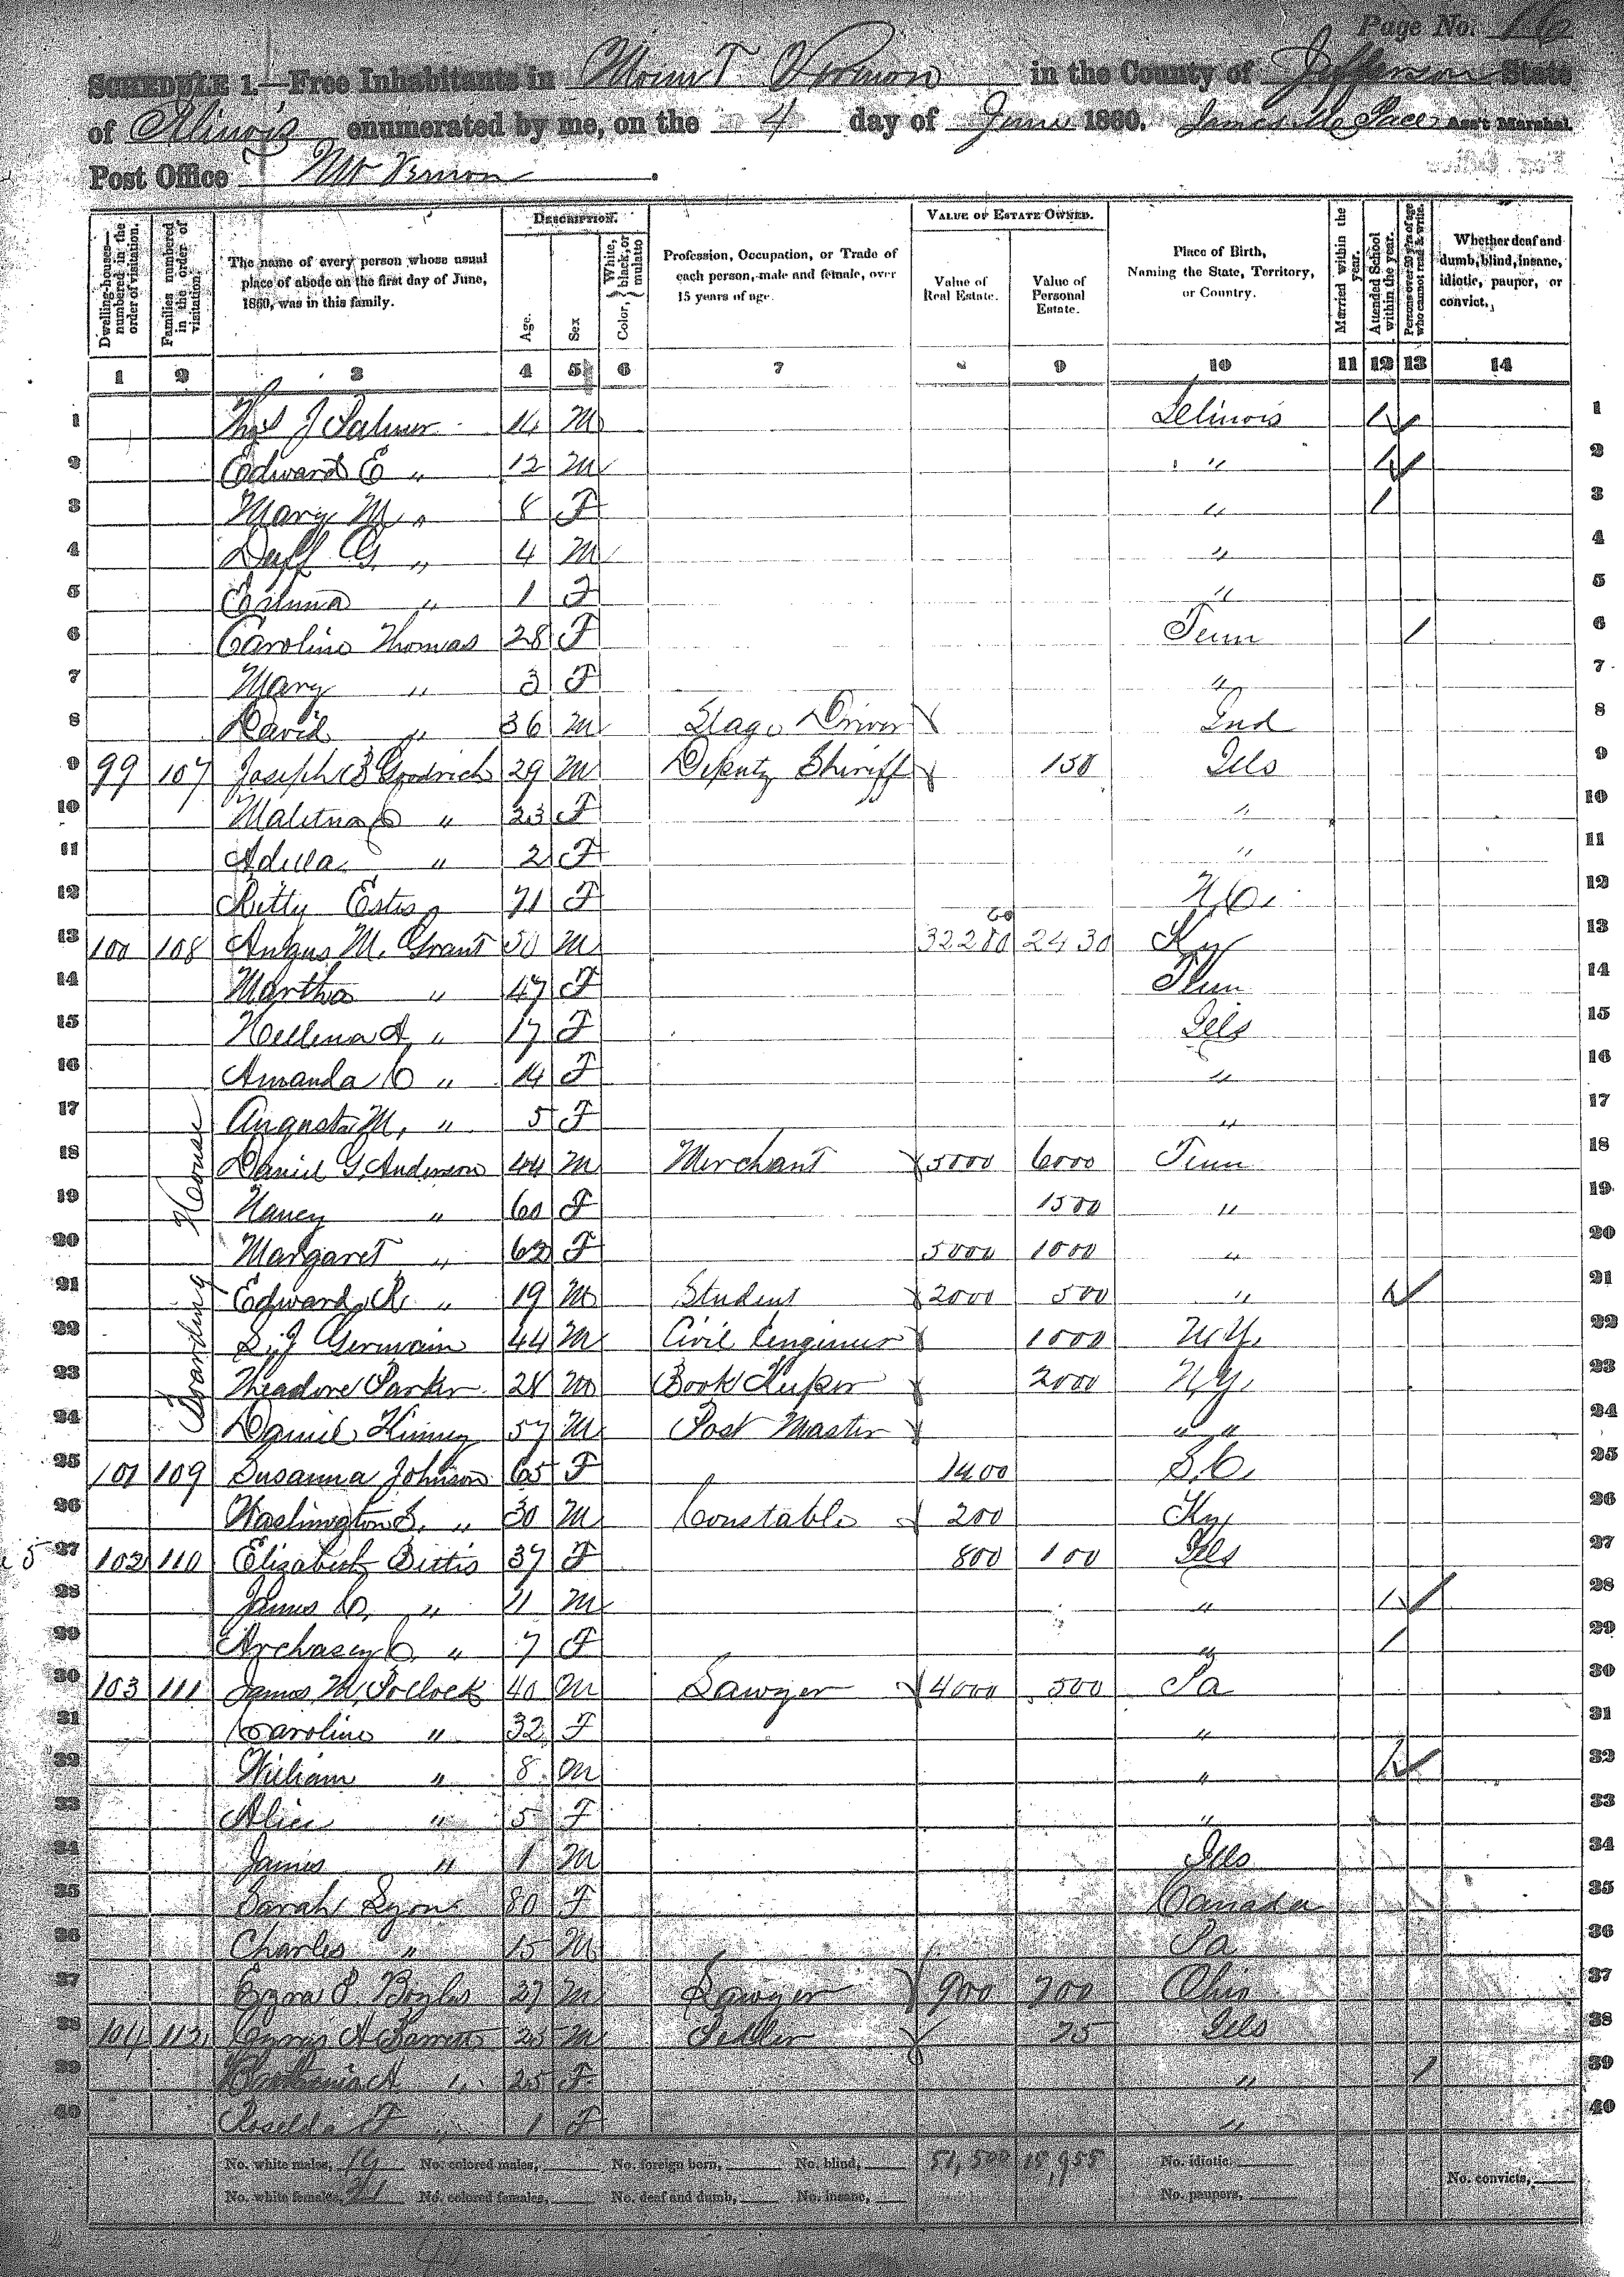 Page No. 16
SCHEDULE 1.—Free Inhabitants in Mount Vernon in the County of Jefferson State
of Illinois enumerated by me, on the 4 day of June 1860. James M Pace Ass't Marshal.
Post Office Mt Vernon
Dwelling-houses—numbered in the order of visitation.
Families numbered in the order of visitation.
The name of every person whose usual place of abode on the first day of June, 1860, was in this family.
DESCRIPTION.
Age.
Sex
Color, { White, black, or mulatto
Profession, Occupation, or Trade of each person, male and female, over 15 years of age.
VALUE OF ESTATE OWNED.
Value of Real Estate.
Value of Personal Estate.
Place of Birth, Naming the State, Territory, or Country.
Married within the year.
Attended School within the year.
Persons over 20 y'rs of age who cannot read & write.
Whether deaf and dumb, blind, insane, idiotic, pauper, or convict.
1 2 3 4 5 6 7 9 10 11 12 13 14
1 Thos J Palmer 14 M Illinois / 1
2 Edward E " 12 M " / 2
3 Mary M " 8 F " / 3
4 Duff G. " 4 M " 4
5 " 1 F " 5
6 Caroline Thomas 28 F Tenn / 6
7 Mary " 3 F " 7
8 David " 36 M Stage Driver Ind 8
9 99 107 Joseph B Goodrich 29 M Deputy Sheriff 150 Ills 9
10 " 23 F " 10
11 Adella " 2 F " 11
12 Kitty Estes 71 F N.C. 12
13 100 108 Angus M. Grant 50 M 32200 2430 Ky 13
14 Martha " 47 F Tenn 14
15 Hellena A " 17 F Ills 15
16 Amanda C " 14 F " 16
17 Augusta M. " 5 F " 17
Boarding House
18 Daniel G. Anderson 44 M Merchant 5000 6000 Tenn 18
19 Nancy " 60 F 1500 " 19
20 Margaret " 62 F 5000 1000 " 20
21 Edward R. " 19 M Student 2000 500 " / 21
22 Germain 44 M Civil Engineer 1000 N.Y. 22
23 Theadore Parker 28 M Book Keeper 2000 N.Y. 23
24 Daniel Kinney 57 M Post Master " " 24
25 101 109 Susanna Johnson 65 F 1400 S.C. 25
26 Washington S. " 30 M Constable 200 Ky 26
27 102 110 Elizabeth Bettis 37 F 800 100 Ills 27
28 James C. " 11 M " / 28
29 C. " 7 F " / 29
30 103 111 James M. Pollock 40 M Lawyer 4000 500 Pa 30
31 Caroline " 32 F " 31
32 William " 8 M " / 32
33 Alice " 5 F " 33
34 James " 1 M Ills 34
35 Sarah Lyon 80 F Canada 35
36 Charles " 15 M Pa 36
37 Ezra S. 27 M Lawyer 900 200 Ohio 37
38 104 112 Cyrus A Barrett 25 M Pedler 25 Ills 38
39 A " 25 F " / 39
40 F " 1 F " 40
No. white males, 19 No. colored males, No. foreign born, No. blind, 51,500 15,955 No. idiotic, No. convicts,
No. white females, 21 No. colored females, No. deaf and dumb, No. insane, No. paupers,